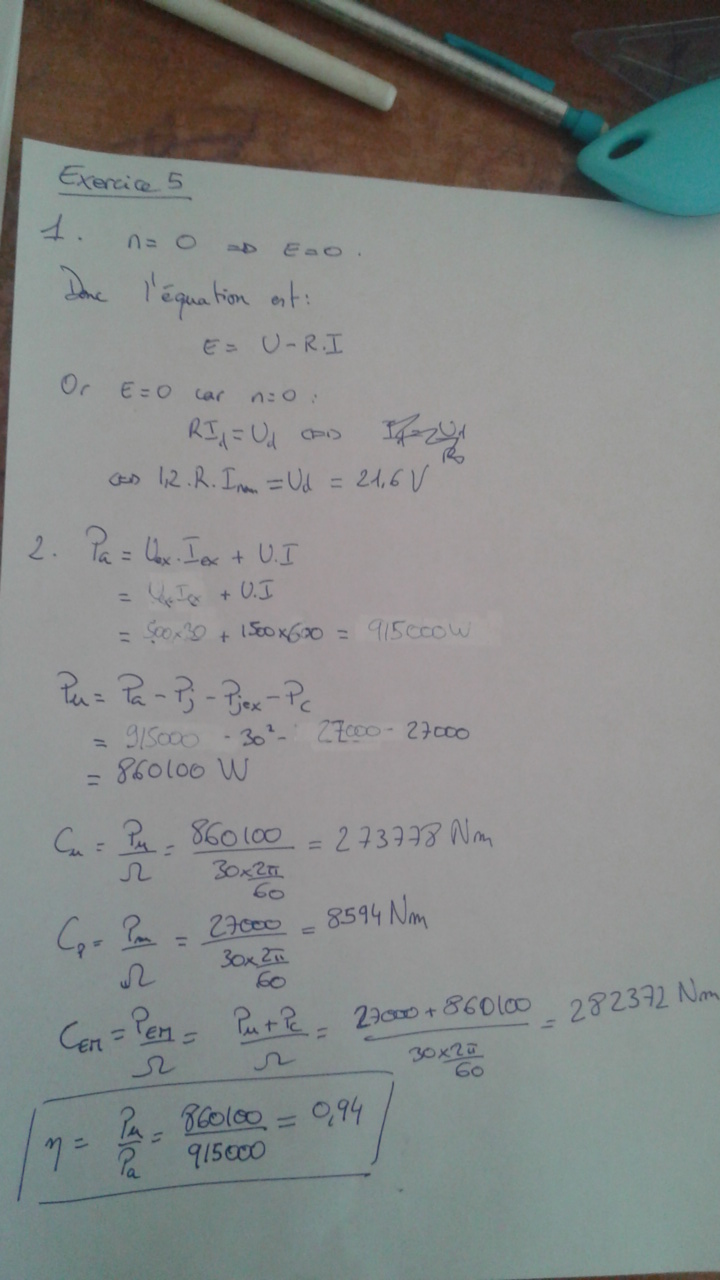 Exercice 5
1. n = 0 ⇒ E = 0.
Donc l'équation est:
E = U - R.I
Or E=0 car n=0:
RI_d = U_d ⇔
⇔ 1,2.R.I_nom = U_d = 21,6 V
2. Pa = U_ex.I_ex + U.I
= U_ex I_ex + U.I
= 500×30 + 1500×600 = 915000W
Pu = Pa - Pj - Pjex - Pc
= 915000 - 30² - 27000 - 27000
= 860100 W
Cu = Pu/Ω = 860100/(30×2π/60) = 273778 Nm
Cp = Pm/Ω = 27000/(30×2π/60) = 8594 Nm
C_EM = P_EM/Ω = (Pu+Pc)/Ω = (27000+860100)/(30×2π/60) = 282372 Nm
η = Pu/Pa = 860100/915000 = 0,94